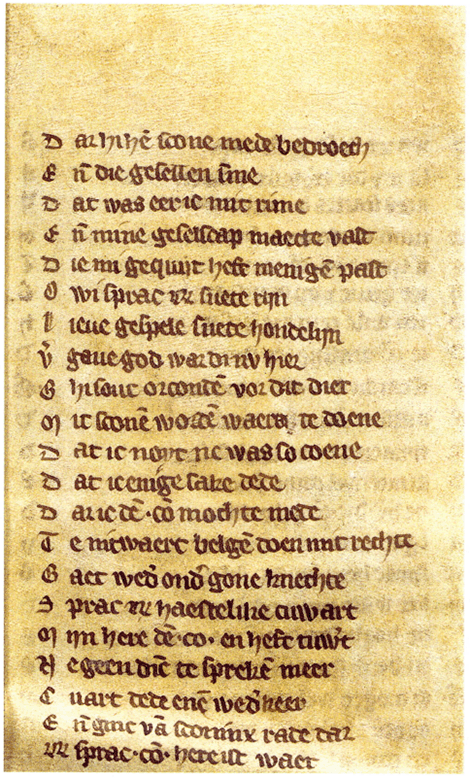 D ar hi hē scone mede bedroech
E n̄ die gesellen sine
D at was eer ic mit rime
E n̄ mine geselscap maecte vast
D ie mi gequijt heft menigē past
O wi sprac .R. suete rijn
L ieue gespele suete hondelijn
V̄ gaue god wardi nv hier
G hi sout orcontē vor dit dier
M it sconē wordē waers te doene
D at ic noyt ne was so coene
D at ic enige sake dede
D ar ic dē .cō mochte mede
T e miwaert belgē doen mit rechte
G aet wed' ond' gone knechte
S prac .R. haestelike cuwart
M ijn here dē .co. en heft tuw't
N egeen diē te sprekē meer
C uart dede enē wed'keer
E n̄ ginc vā sconinx rade dar
.R. sprac .cō. here ist waer